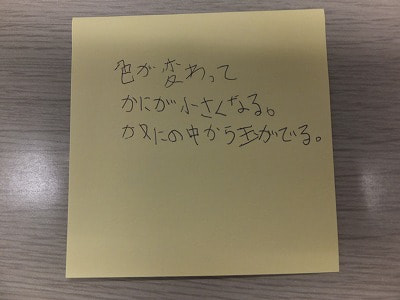 色が変わって
かにが小さくなる。
かにの中から玉がでる。